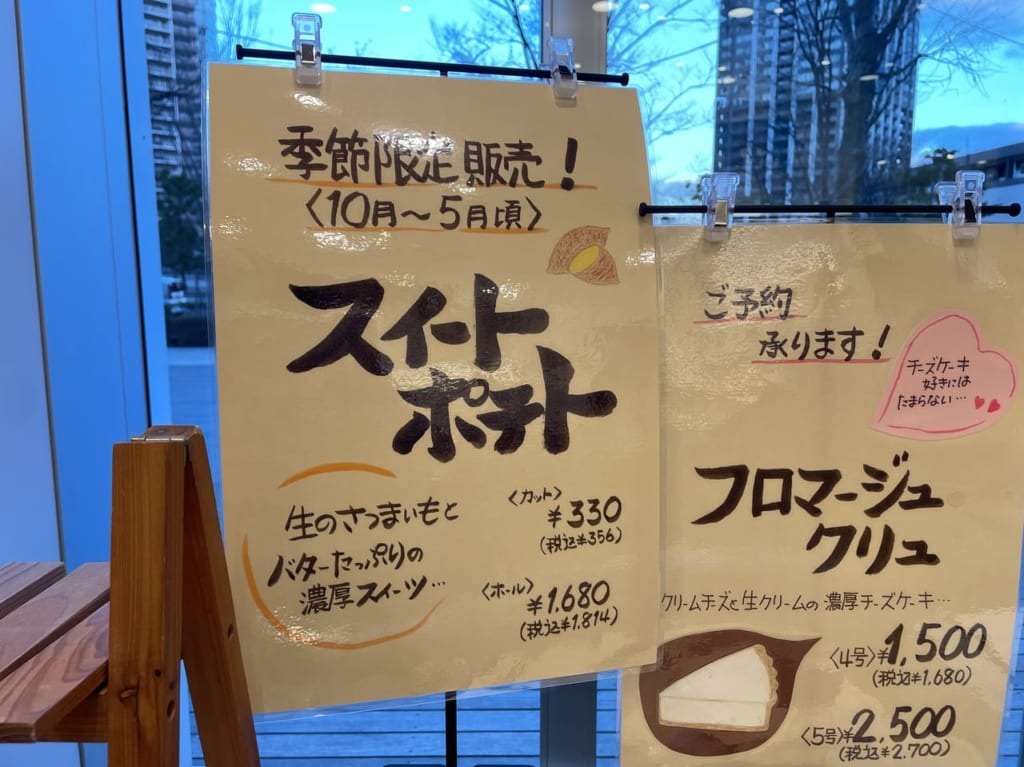 季節限定販売!
〈10月～5月頃〉
スイート
ポテト
生のさつまいもと
バターたっぷりの
濃厚スイーツ…
〈カット〉
¥330
(税込¥356)
〈ホール〉
¥1.680
(税込¥1.814)
ご予約
承ります!
チーズケーキ
好きには
たまらない…
フロマージュ
クリュ
クリームチーズと生クリームの濃厚チーズケーキ…
〈4号〉¥1,500
(税込¥1.680)
〈5号〉¥2,500
(税込¥2.700)